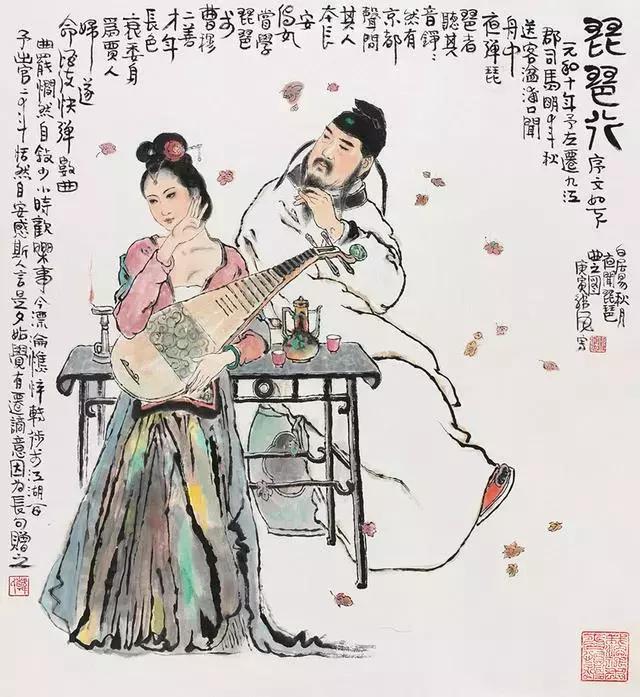 琵琶行
序文如下
元和十年予左遷九江
郡司馬明年秋
送客湓浦口聞
舟中
夜彈琵
琶者
聽其
音錚々
然有
京都
聲問
其人
本長
安
倡女
嘗學
琵琶
於
曹穆
二善
才年
長色
衰委身
為賈人
婦遂
命酒使快彈數曲
曲罷憫然自敘少小時歡樂事今漂淪憔悴轉徙於江湖間
予出官二年恬然自安感斯人言是夕始覺有遷謫意因為長句贈之
白居易秋月
夜聞琵琶
曲之圖
庚寅寫